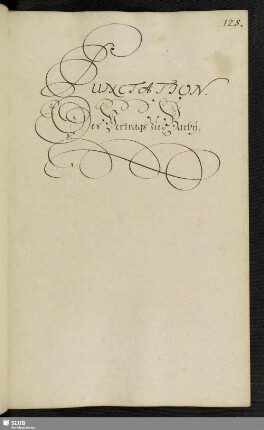 128.
PUNCTATION.
Des Vertrags zu Barbÿ.
SLUB